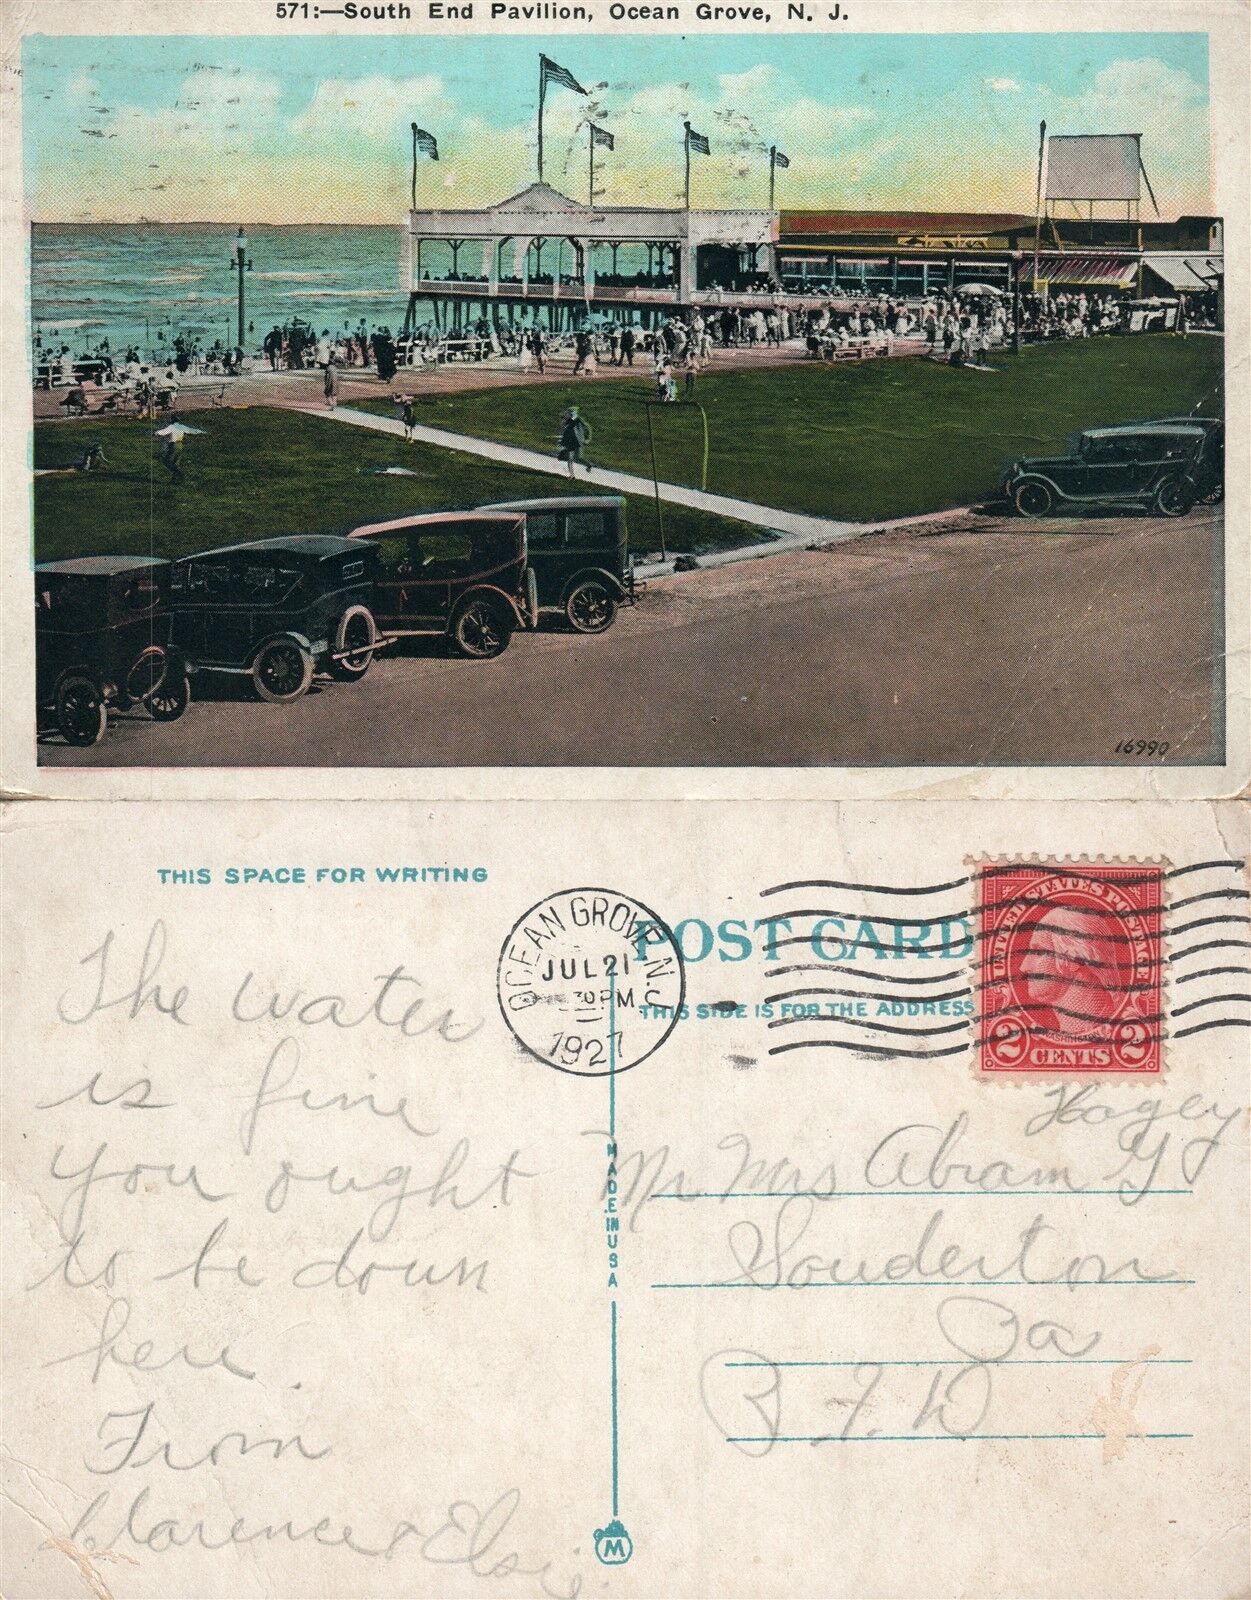 571:—South End Pavilion, Ocean Grove, N. J.
16990
THIS SPACE FOR WRITING
The water
is fine
you ought
to be down
here.
From
Clarence & Elsie.
OCEAN GROVE N.J.
JUL 21
30 PM
1927
POST CARD
THIS SIDE IS FOR THE ADDRESS
UNITED STATES POSTAGE
WASHINGTON
2 CENTS 2
MADE IN USA
Hagey
Mr Mrs Abram G
Souderton
Pa
R. F. D
M